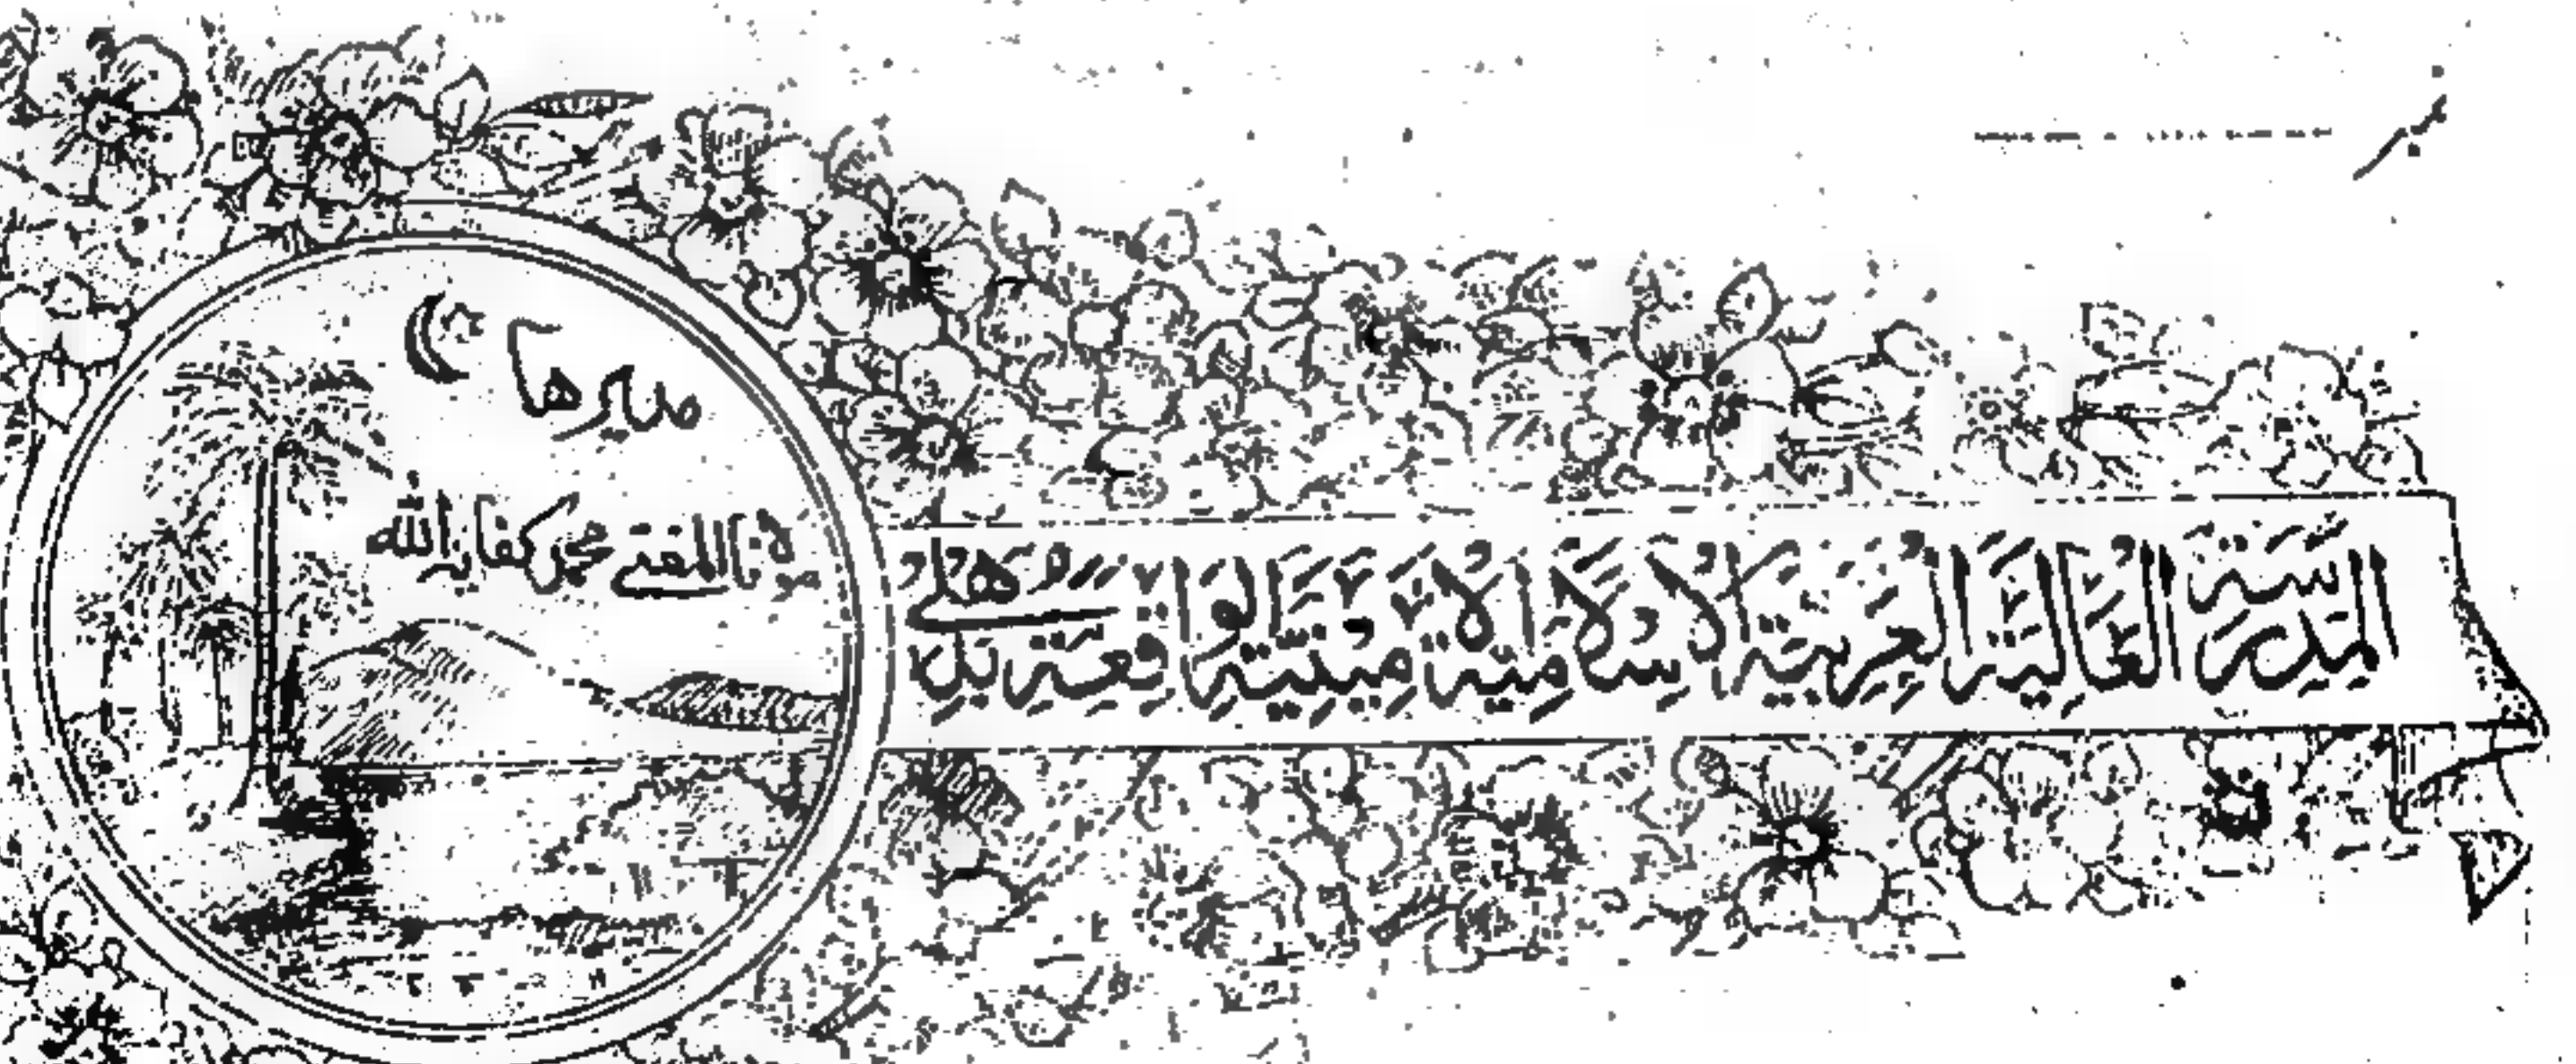 نمبر
المدرسة العالية العربية الاسلامية الامينية الواقعة بدهلي
مديرها
مولانا المفتي محمد كفاية الله